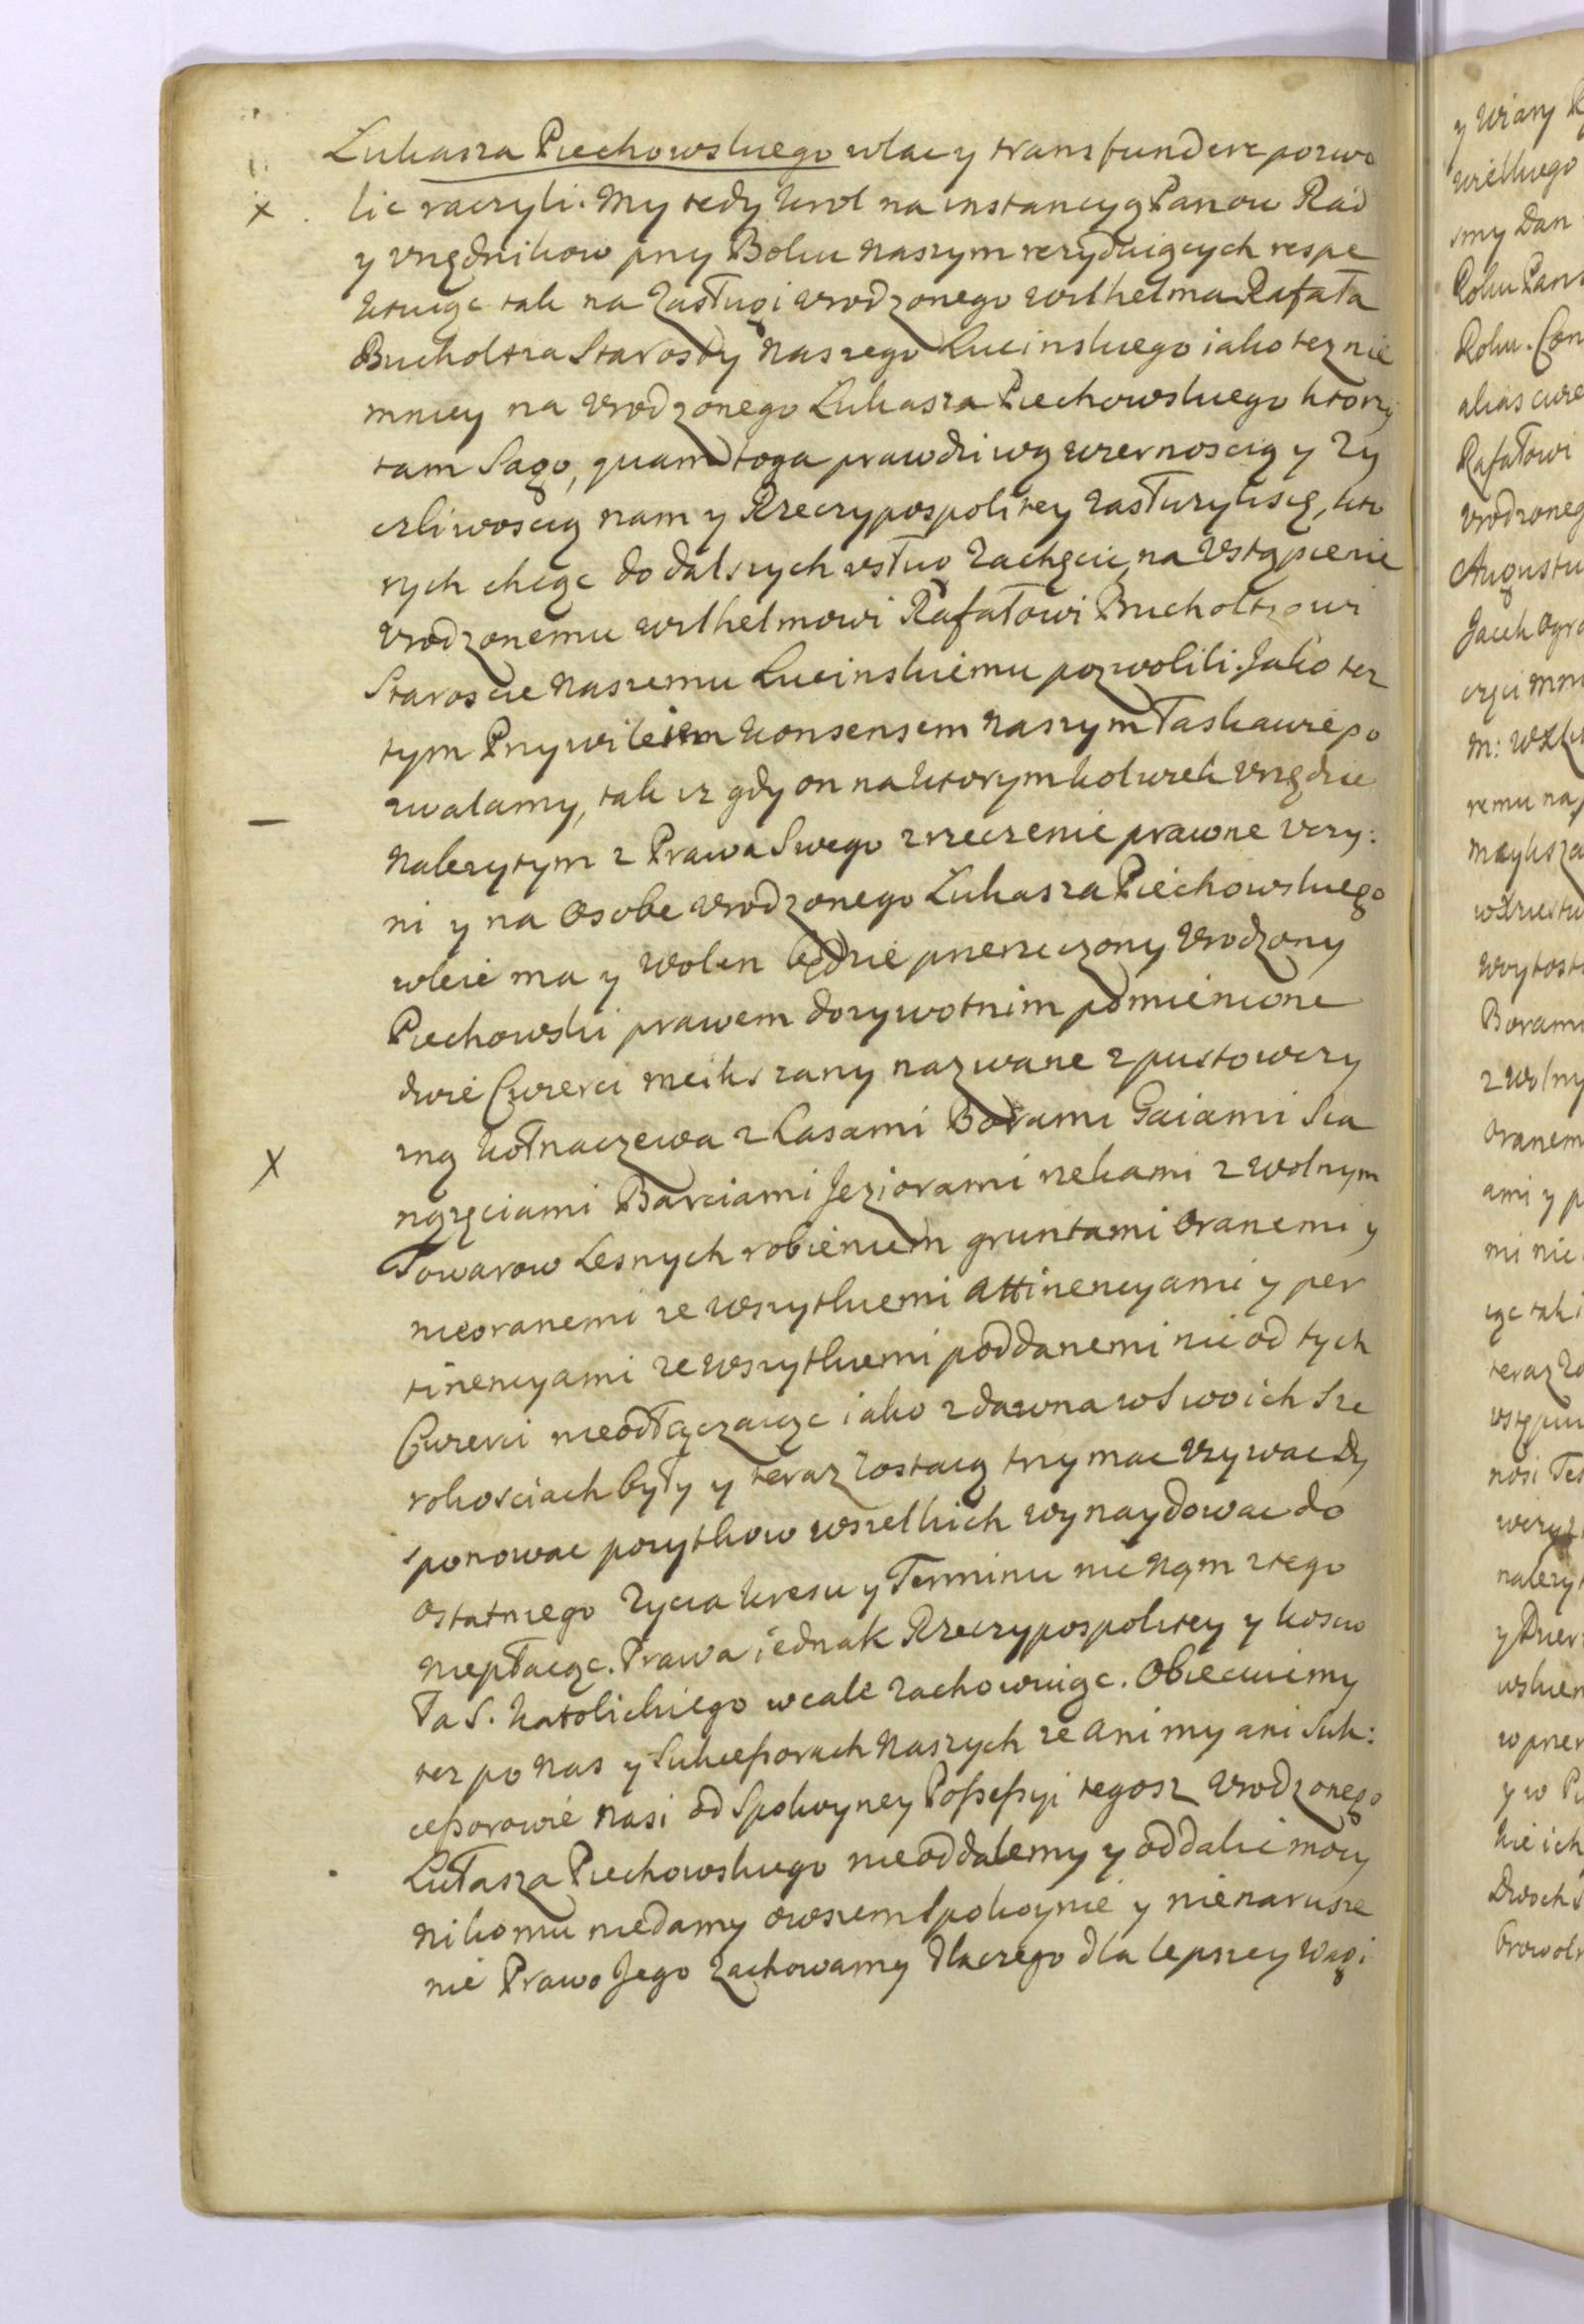 Lukasza Piechowskiego wlac y transfundere pozwo
lic raczyli. My tedy Krol na instancyą Panow Rad
y vrzędnikow przy Boku Naszym rezyduiących respe
ktuiąc tak na Zasługi vrodzonego Wilhelma Rafała
Bucholtza Starosty Naszego Kucinskiego iako tez nie
mniey na Vrodzonego Lukasza Piechowskiego ktorzy
tam Sago, quam toga prawdziwą wiernoscią y Zy
czliwoscią nam y Rzeczypospolitey zasłuzylisię, kto
rych chcąc do dalszych vsług Zachęcic, na Vstąpienie
Vrodzonemu Wilhelmowi Rafałowi Bucholtzowi
Staroscie Naszemu Kucinskiemu pozwolili. Jako tez
tym Przywileiem Konsensem Naszym łaskawie po
zwalamy, tak iz gdy on naktorymkolwiek Vrzędzie
Nalezytym z Prawa Swego zrzeczenie prawne vczy:
ni y na Osobe Vrodzonego Lukasza Piechowskiego
wleie ma y Wolen będzie przerzeczony Vrodzony
Piechowski prawem dozywotnim pomienione
dwie Cwierci meikszany nazwane z pustowczy
zną Kołnaczewa z Lasami Borami Gaiami Sia
nozęciami Barciami Jeziorami rzekami z Wolnym
Towarow Lesnych robieniem gruntami Oranemi y
nieoranemi ze Wszytkiemi Attinencyami y per
tinencyami ze Wszytkiemi poddanemi nic od tych
Cwierci nieodłączaiąc iako zdawna wSwoich Sze
rokosciach były y teraz Zostaią trzymac Vzywac Dy
sponowac pozytkow wszelkich wynaydowac do
Ostatniego Zycia kresu y Terminu nic Nąm ztego
Niepłacąc. Prawa iednak Rzeczypospolitey y koscio
ła S. Katolickiego wcale Zachowuiąc. Obiecuiemy
tez po Nas y Sukcessorach Naszych ze Ani my ani Suk:
cessorowie Nasi od Spokoyney Possessyi tegosz Vrodzonego
Lułasza Piechowskiego nieoddalemy y oddalic mocy
Nikomu niedamy owszem Spokoynie y nienarusze
nie Prawo Jego Zachowamy Dlaczego dla lepszey Wagi